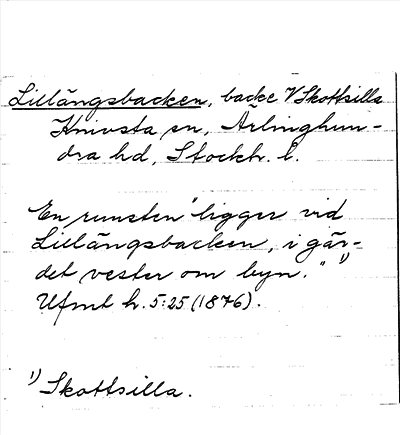 Lillängsbacken, backe V Skottsilla
Knivsta sn, Ärlinghun-
dra hd, Stockh. l.
En runsten "ligger vid
Lillängsbacken, i gär-
det vester om byn." 1)
Ufmt h. 5:25 (1876).
1) Skottsilla.